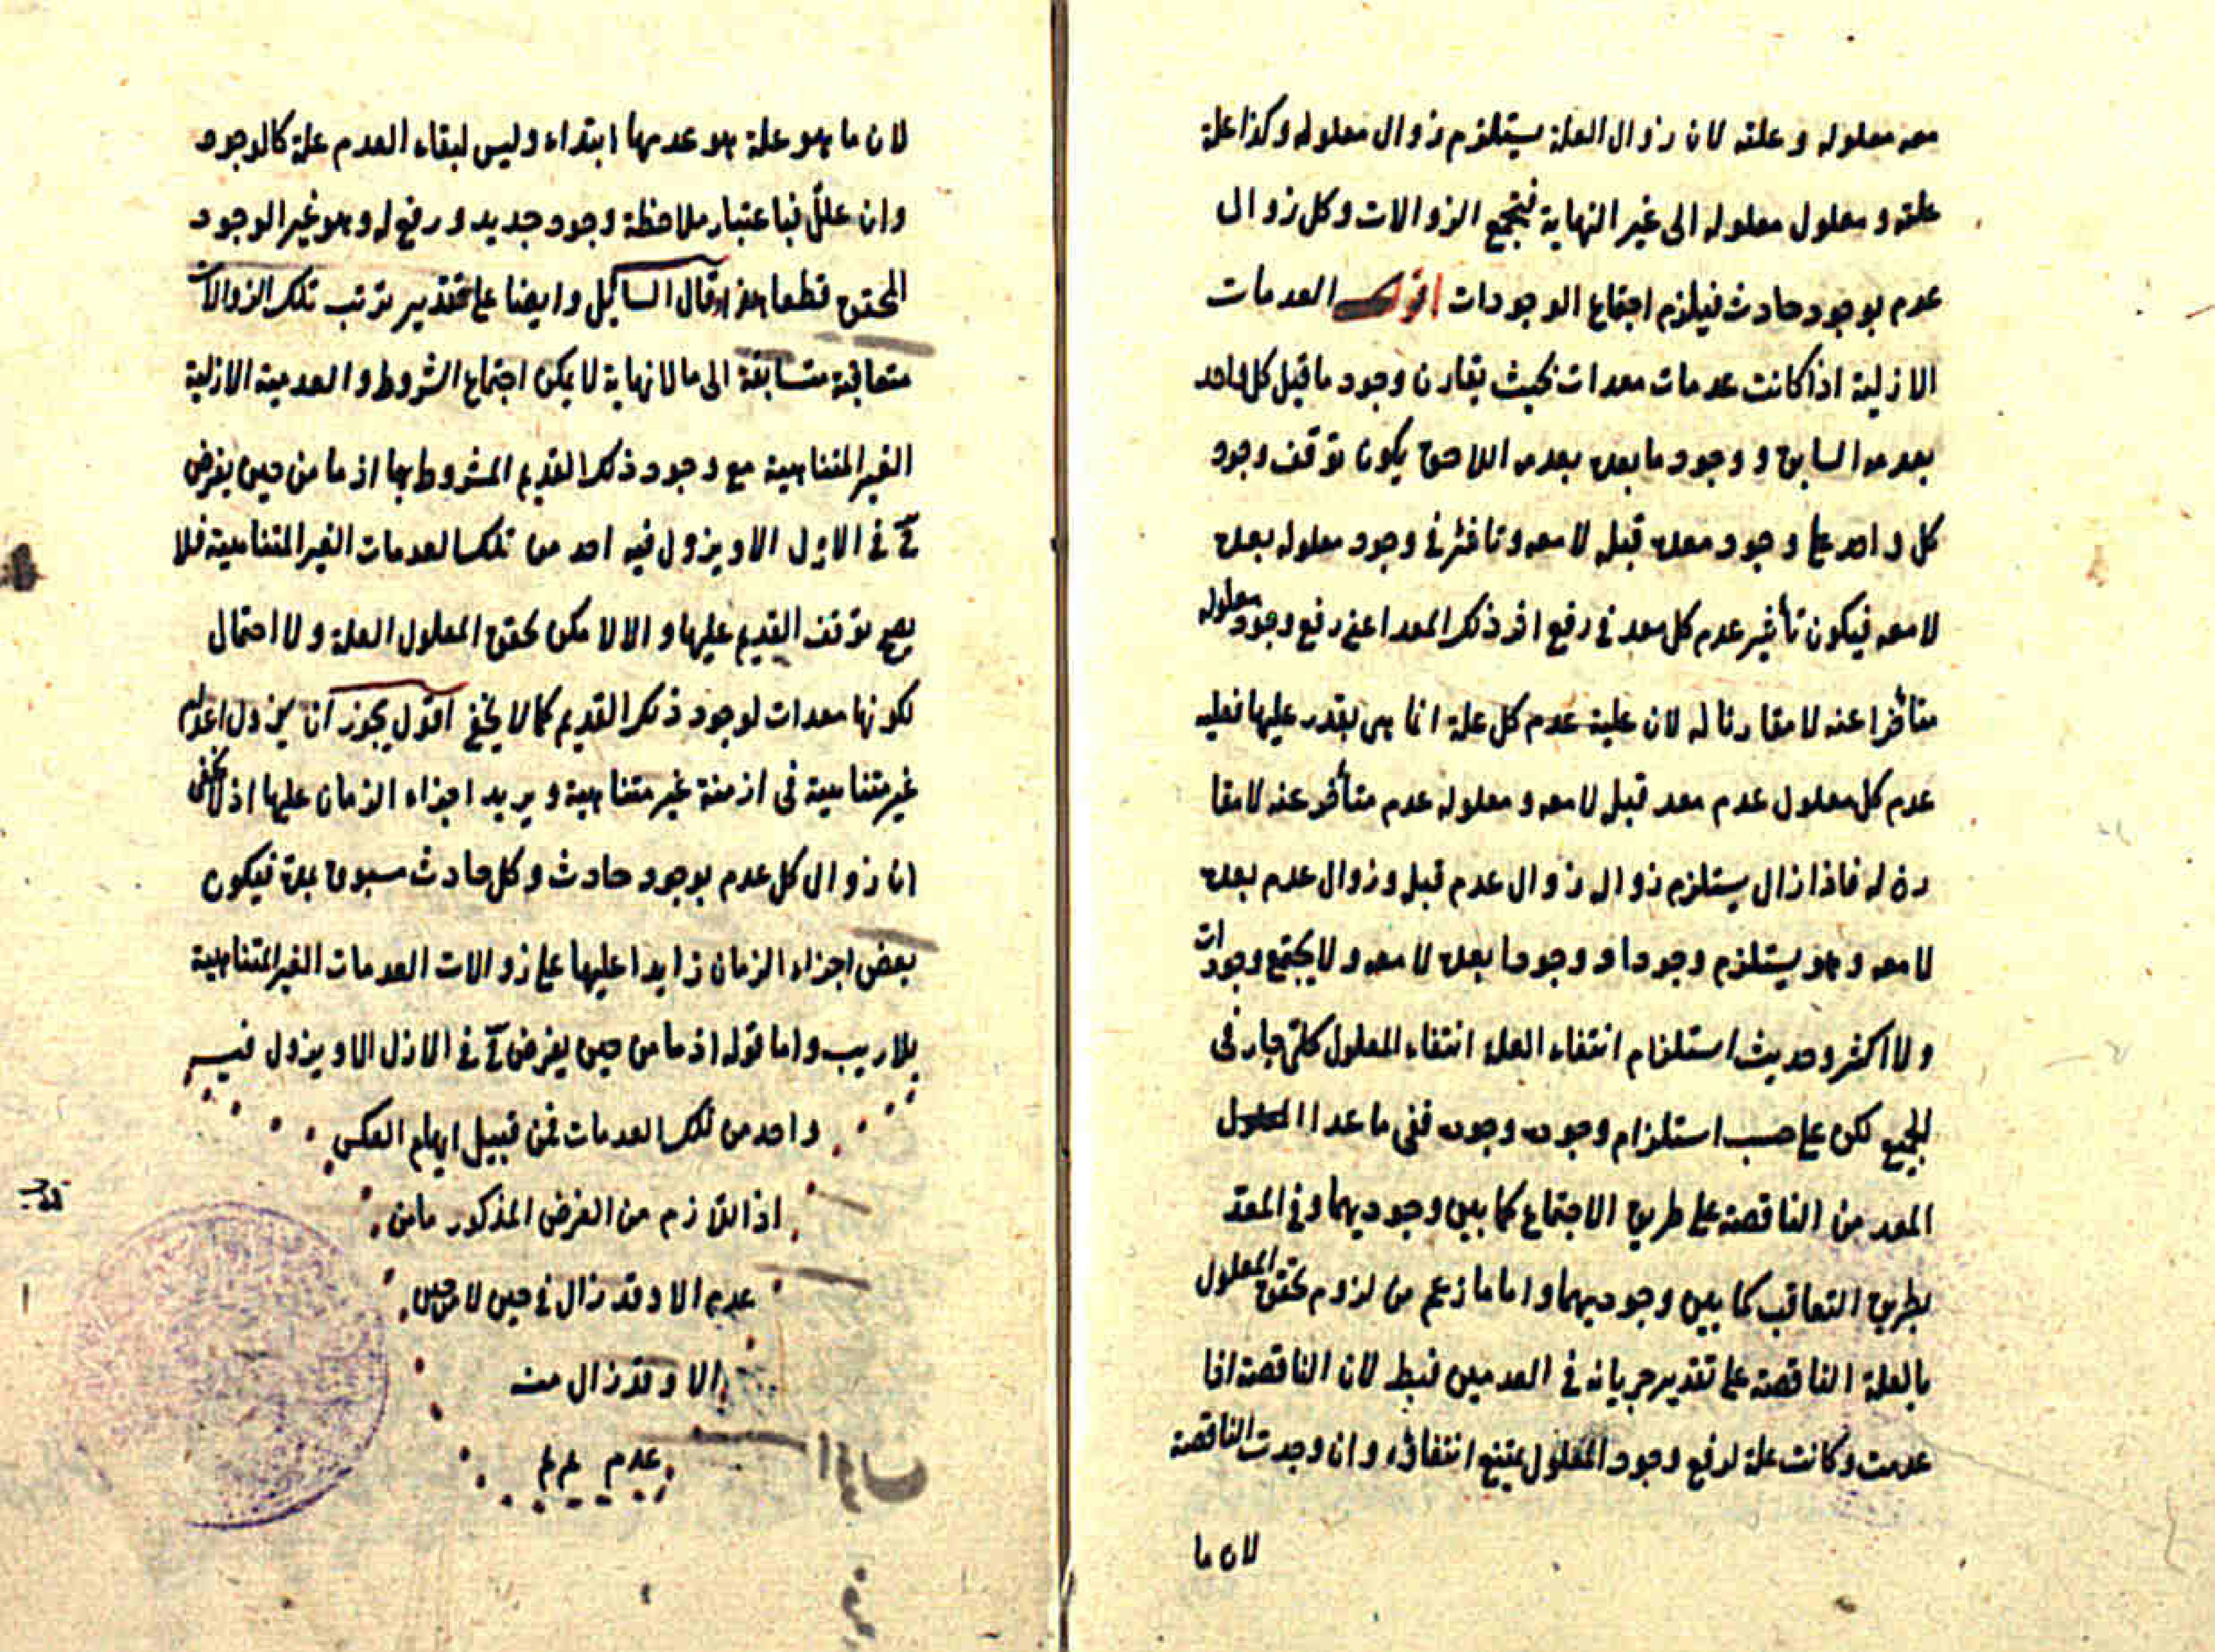 معه معلوله وعلته لان زوال العلة يستلزم زوال معلوله وكذا علة
علته ومعلول معلوله الى غير النهاية فيجتمع الزوالات وكل زوال
عدم بوجود حادث فيلزم اجتماع الوجودات اقول العدمات
الازلية اذا كانت عدمات معدات بحيث يقارن وجود ما قبل كل واحد
بعدم السابق ووجود ما بعده بعدم اللاحق يكون توقف وجود
كل واحد على وجود معده قبله لا معه وتأثيره في وجود معلوله بعده
لا معه فيكون تأثير عدم كل معد في رفع اثر ذلك المعد اعني رفع وجود معلوله
متأخرا عنه لا مقارنا له لان علية عدم كل علة انما هي بقدر عليها فعلية
عدم كل معلول عدم معد قبل لا معه ومعلوله عدم متأخر عنه لا مقا
رن له فاذا زال يستلزم زواله زوال عدم قبل وزوال عدم بعده
لا معه وهو يستلزم وجودا ووجودا بعده لا معه ولا يجتمع وجودات
ولا اكثر وحديث استلزام انتفاء العلة انتفاء المعلول كلي جار في
الجميع لكن على حسب استلزام وجوده وجوده ففي ما عدا
المعد من الناقصة على طريق الاجتماع كما بين وجوديهما وفي المعد
بطريق التعاقب كما بين وجوديهما واما ما زعم من لزوم تحقق المعلول
بالعلة الناقصة على تقدير جريانه في العدمين فبط لان الناقصة اذا
عدمت وكانت علة لرفع وجود المعلول يمتنع انتفاؤه وان وجدت الناقصة
لان ما
لان ما هو علة هو عدمها ابتداء وليس لبقاء العدم علة كالوجود
وان علل فباعتبار ملاحظة وجود جديد ورفع له وهو غير الوجود
المحقق قطعا هذا وقال السائل وايضا على تقدير ترتب تلك الزوالات
متعاقبة متسابقة الى ما لا نهاية لا يمكن اجتماع الشروط والعدمية الازلية
الغير المتناهية مع وجود ذلك القديم المشروط بها اذ ما من حين يفرض
في الازل الا ويزول فيه احد من تلك العدمات الغير المتناهية فلا
يصح توقف القديم عليها والا لا مكن تحقق المعلول العلة ولا احتمال
لكونها معدات لوجود ذلك القديم كما لا يخفى اقول يجوز ان يزول اعدام
غير متناهية في ازمنة غير متناهية ويريد اجزاء الزمان عليها اذ لا يخفى
ان زوال كل عدم بوجود حادث وكل حادث مسبوق بمدة فيكون
بعض اجزاء الزمان زايدا عليها على زوالات العدمات الغير المتناهية
بلا ريب واما قوله اذ ما من حين يفرض في الازل الا ويزول فيه
واحد من تلك العدمات فمن قبيل ايهام العكس
اذ اللازم من الفرض المذكور ما من
عدم الا وقد زال في حين لا من حين
الا وقد زال منه
عدم